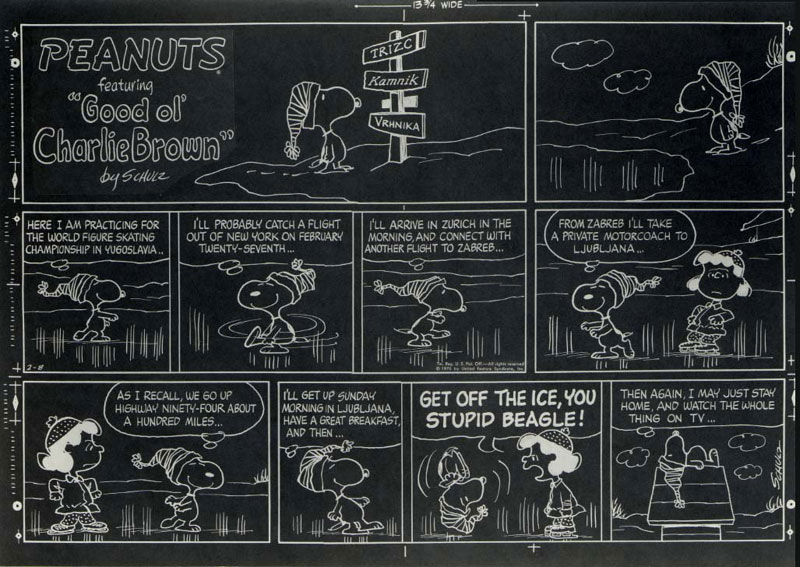 13 3/4 WIDE
PEANUTS
featuring
"Good ol'
Charlie Brown"
by SCHULZ
TRIZC
Kamnik
VRHNIKA
HERE I AM PRACTICING FOR
THE WORLD FIGURE SKATING
CHAMPIONSHIP IN YUGOSLAVIA..
2-8
I'LL PROBABLY CATCH A FLIGHT
OUT OF NEW YORK ON FEBRUARY
TWENTY-SEVENTH...
I'LL ARRIVE IN ZURICH IN THE
MORNING, AND CONNECT WITH
ANOTHER FLIGHT TO ZABREB...
Tm. Reg. U.S. Pat. Off.—All rights reserved
© 1970 by United Feature Syndicate, Inc.
FROM ZABREB I'LL TAKE
A PRIVATE MOTORCOACH TO
LJUBLJANA...
AS I RECALL, WE GO UP
HIGHWAY NINETY-FOUR ABOUT
A HUNDRED MILES...
I'LL GET UP SUNDAY
MORNING IN LJUBLJANA,
HAVE A GREAT BREAKFAST,
AND THEN...
GET OFF THE ICE, YOU
STUPID BEAGLE!
THEN AGAIN, I MAY JUST STAY
HOME, AND WATCH THE WHOLE
THING ON TV...
SCHULZ